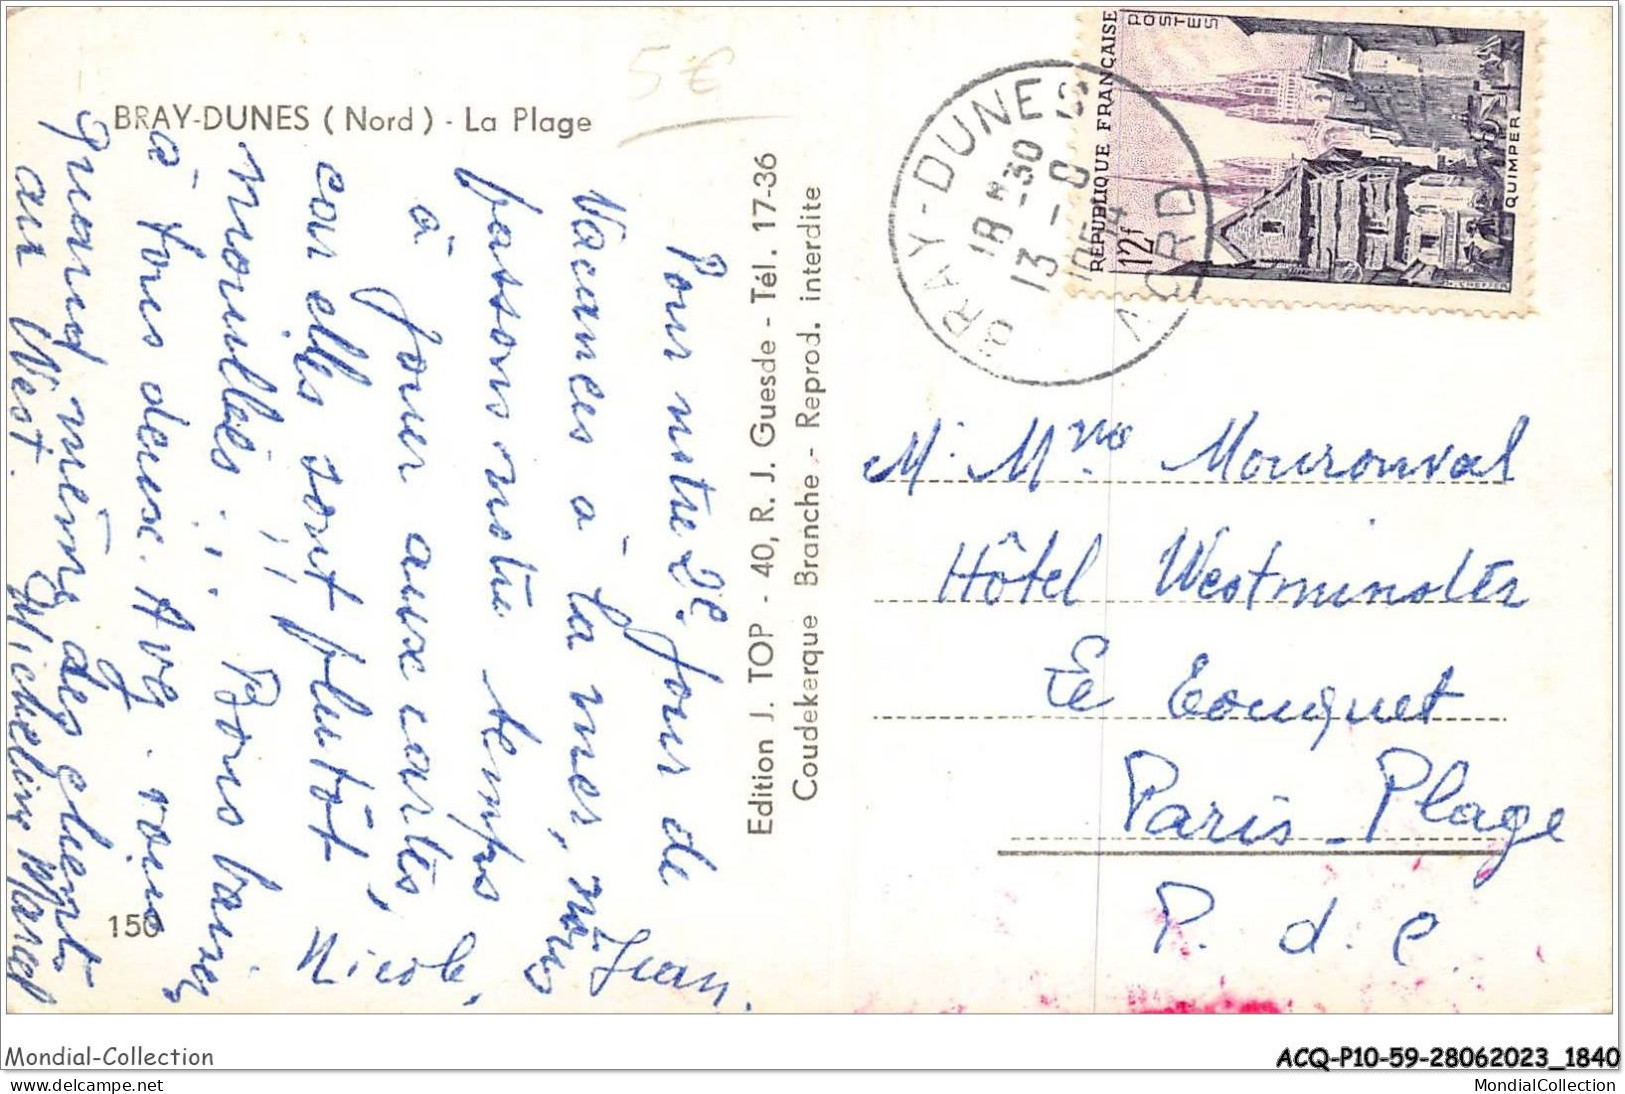 BRAY-DUNES ( Nord ) - La Plage
5 €
Pour notre 2e jour de
Vacances à la mer, nous
passons notre temps
à jouer aux cartes,
car elles sont plutôt
mouillées !!! Bons baisers
à tous deux. Avez-vous
quand même des clients
au West.
Jean
Nicole,
Micheline Marcel
150
Edition J. TOP - 40, R. J. Guesde - Tél. 17-36
Coudekerque Branche - Reprod. interdite
BRAY-DUNES
18 H -30
13 -
NORD
REPUBLIQUE FRANÇAISE
POSTES
12f
QUIMPER
M. Mme Mouronval
Hôtel Westminster
Le Touquet
Paris-Plage
P. d. C.
Mondial-Collection
ACQ-P10-59-28062023_1840
www.delcampe.net
MondialCollection